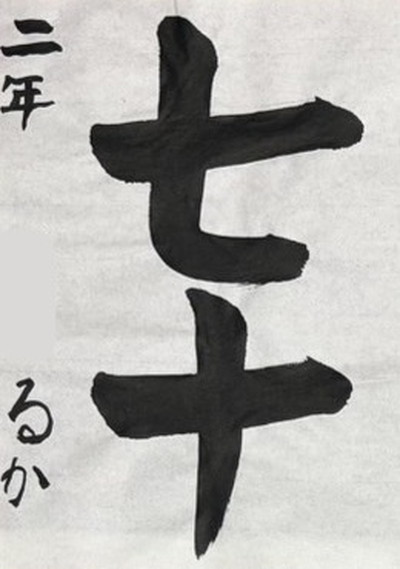 七十
二年 るか